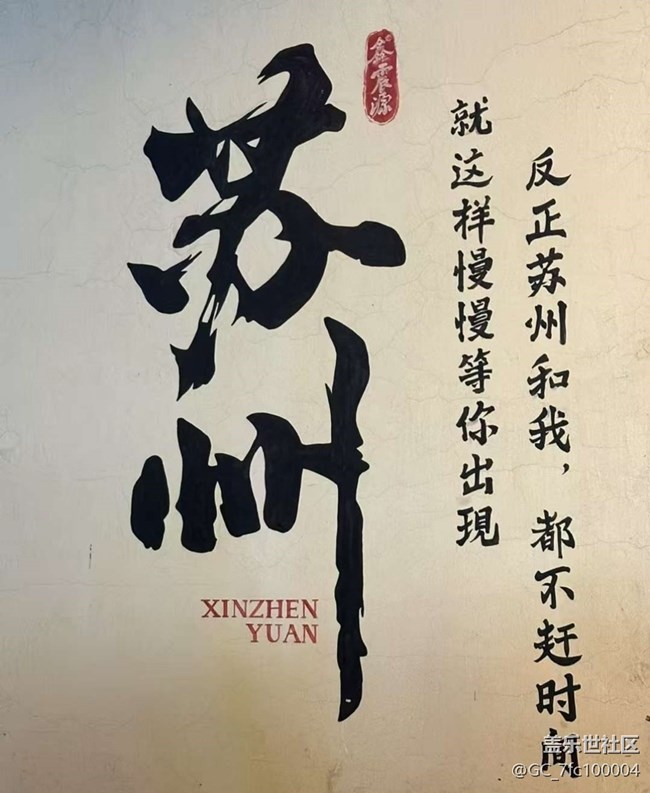 苏州
鑫震源
XINZHEN
YUAN
反正苏州和我，都不赶时间
就这样慢慢等你出現
盖乐世社区
@GC_7fc100004